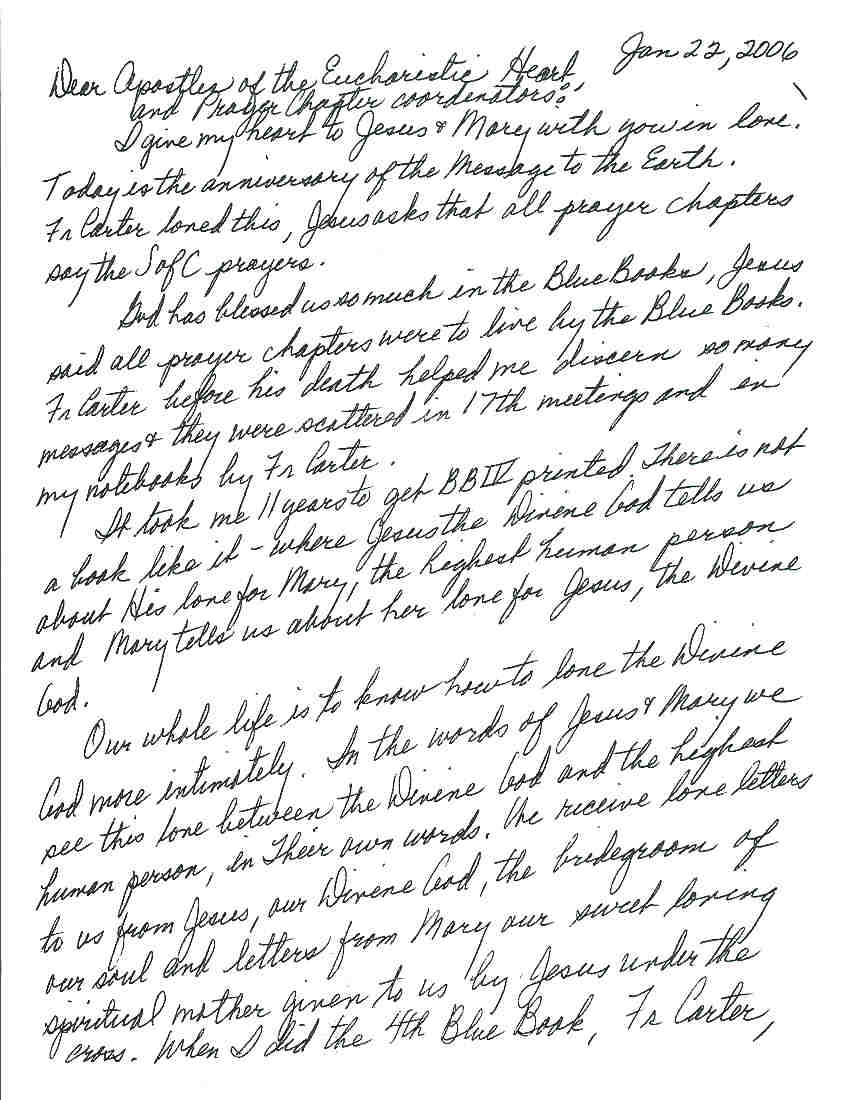 Jan 22, 2006
Dear Apostles of the Eucharistic Heart,
and Prayer Chapter coordinators:
I give my heart to Jesus & Mary with you in love.
Today is the anniversary of the Message to the Earth.
Fr Carter loved this, Jesus asks that all prayer chapters
say the S of C prayers.
God has blessed us so much in the Blue Books, Jesus
said all prayer chapters were to live by the Blue Books.
Fr Carter before his death helped me discern so many
messages & they were scattered in 17th meetings and in
my notebooks by Fr Carter.
It took me 11 years to get BB IV printed. There is not
a book like it - where Jesus the Divine God tells us
about His love for Mary, the highest human person
and Mary tells us about her love for Jesus, the Divine
God.
Our whole life is to know how to love the Divine
God more intimately. In the words of Jesus & Mary we
see this love between the Divine God and the highest
human person, in Their own words. We receive love letters
to us from Jesus, our Divine God, the bridegroom of
our soul and letters from Mary our sweet loving
spiritual mother given to us by Jesus under the
cross. When I did the 4th Blue Book, Fr Carter,